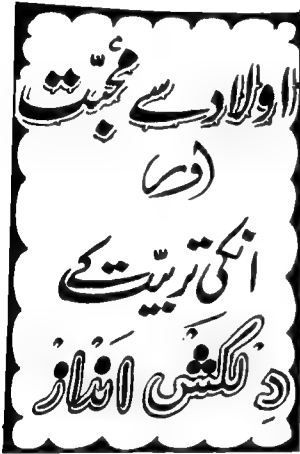 اولاد سے محبّت
اور
انکی تربیّت کے
دِلکش اَنداز